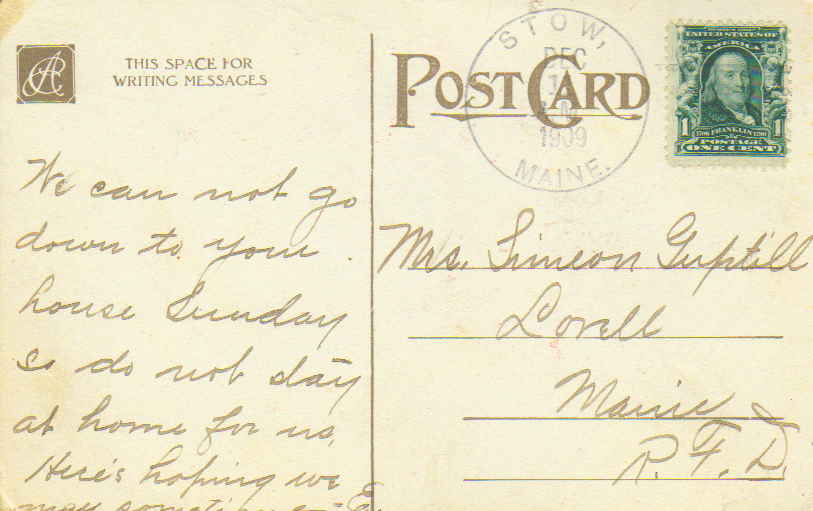 THIS SPACE FOR
WRITING MESSAGES
We can not go
down to your
house Sunday
so do not stay
at home for us.
Here's hoping we
may sometime
POST CARD
STOW,
DEC
1909
MAINE.
UNITED STATES OF
AMERICA
1 1706 FRANKLIN 1790 1
POSTAGE
ONE CENT
Mrs. Simeon Guptill
Lovell
Maine
R. F. D.